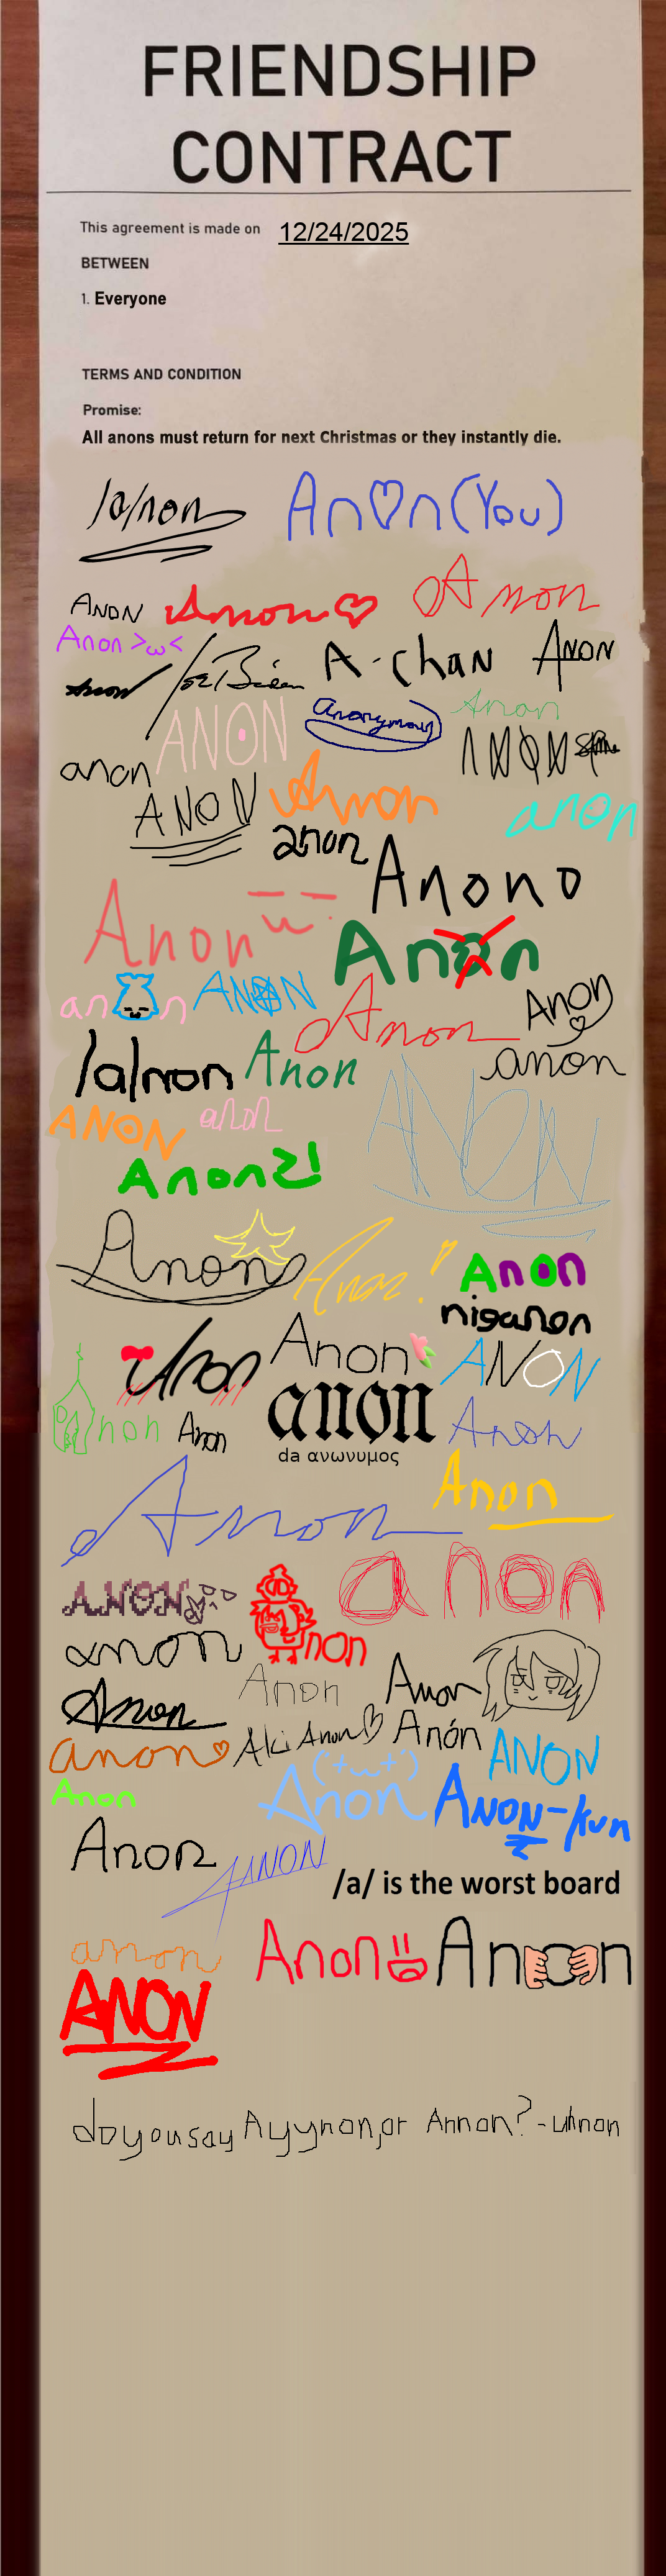 FRIENDSHIP
CONTRACT
This agreement is made on 12/24/2025
BETWEEN
1. Everyone
TERMS AND CONDITION
Promise:
All anons must return for next Christmas or they instantly die.
/a/non An♡n (You)
Anon
ANON Anon♡
Anon >ω<
Anon Joe Biden A-chan ANON
ANON Anonymous Anon
anon ANON
ANON Anon anon
anon Anono
Anon
Anon
an n ANON Anon Anon
/a/non Anon anon
ANON anon ANON
Anonz!
Anon Anon! Anon
niganon
Anon Anon ANON
non Anon anon Anon
da ανωνυμος
Anon Anon
ANON non anon
anon
Anon Anon Anon
anon♡ Aki Anon♡ Anón ANON
Anon Anon (´+ω+`) ANON-kun
Anon ANON
/a/ is the worst board
anon Anon Anon
ANON
do you say Ayynon, or Annon? -uhnon